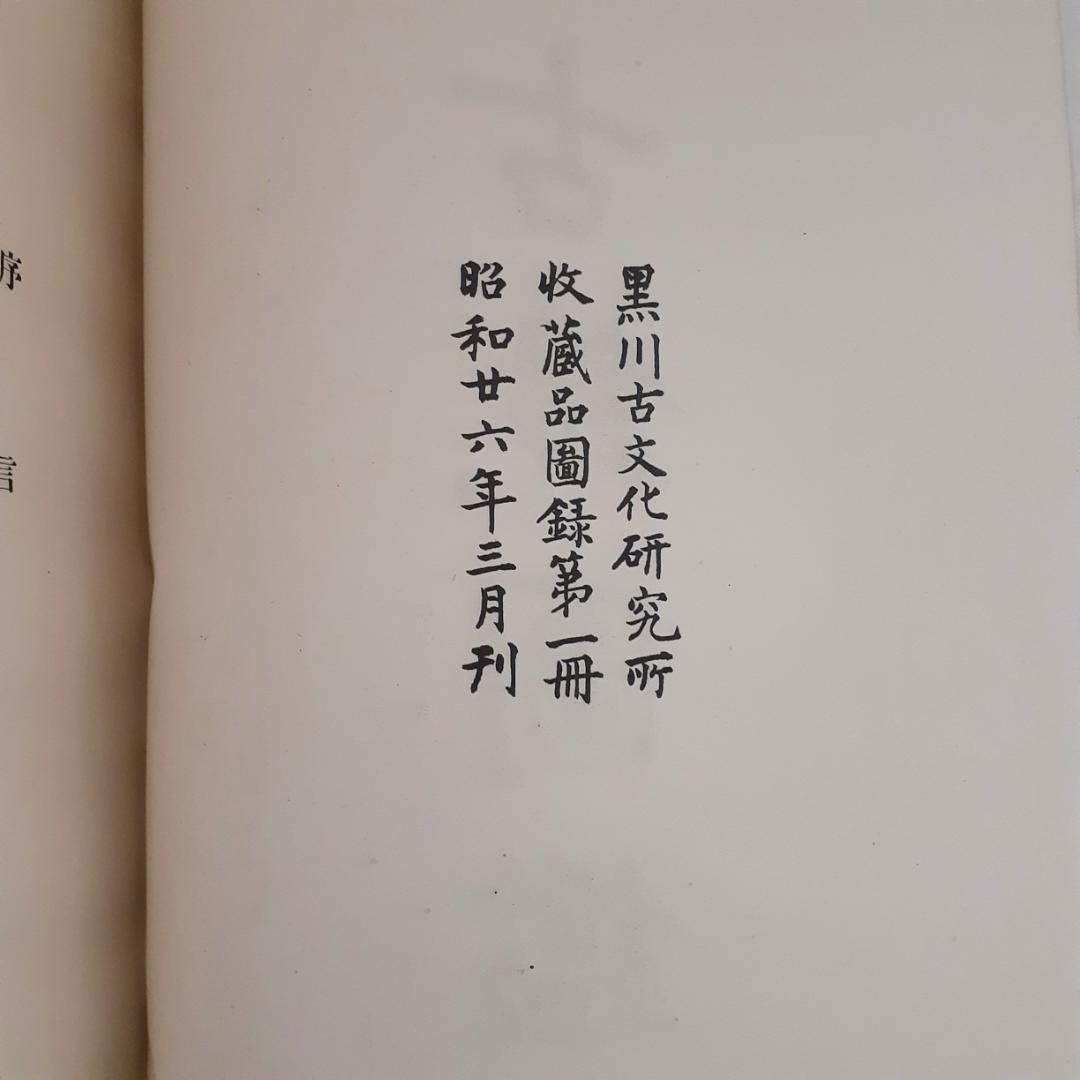 黒川古文化研究所
收蔵品圖録第一冊
昭和廿六年三月刊
序
言